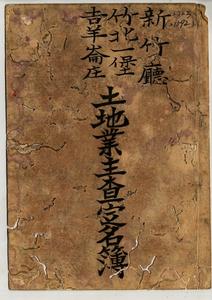 新竹廳
竹北一堡
吉羊崙庄
土地業主查定名簿